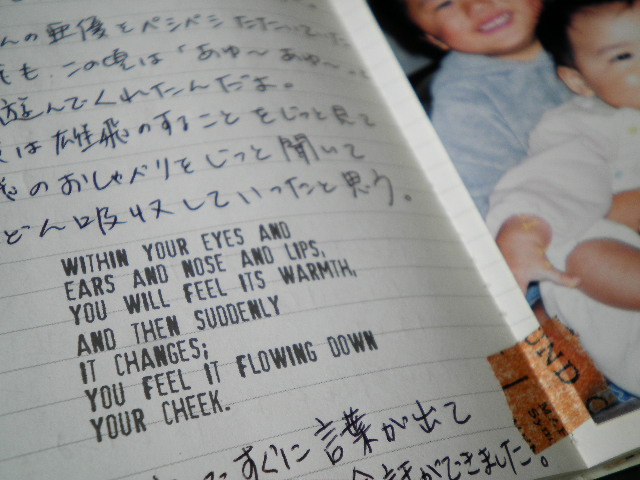 んの亜優をペシペシたたいていた
も、この頃は「あゅ〜あゅ〜」
遊んでくれたんだよ。
は雄飛のすることをじっと見て
のおしゃべりをじっと聞いて
どん吸収していったと思う。
WITHIN YOUR EYES AND
EARS AND NOSE AND LIPS,
YOU WILL FEEL ITS WARMTH,
AND THEN SUDDENLY
IT CHANGES;
YOU FEEL IT FLOWING DOWN
YOUR CHEEK.
すぐに言葉が出て
会話ができました。
OUND